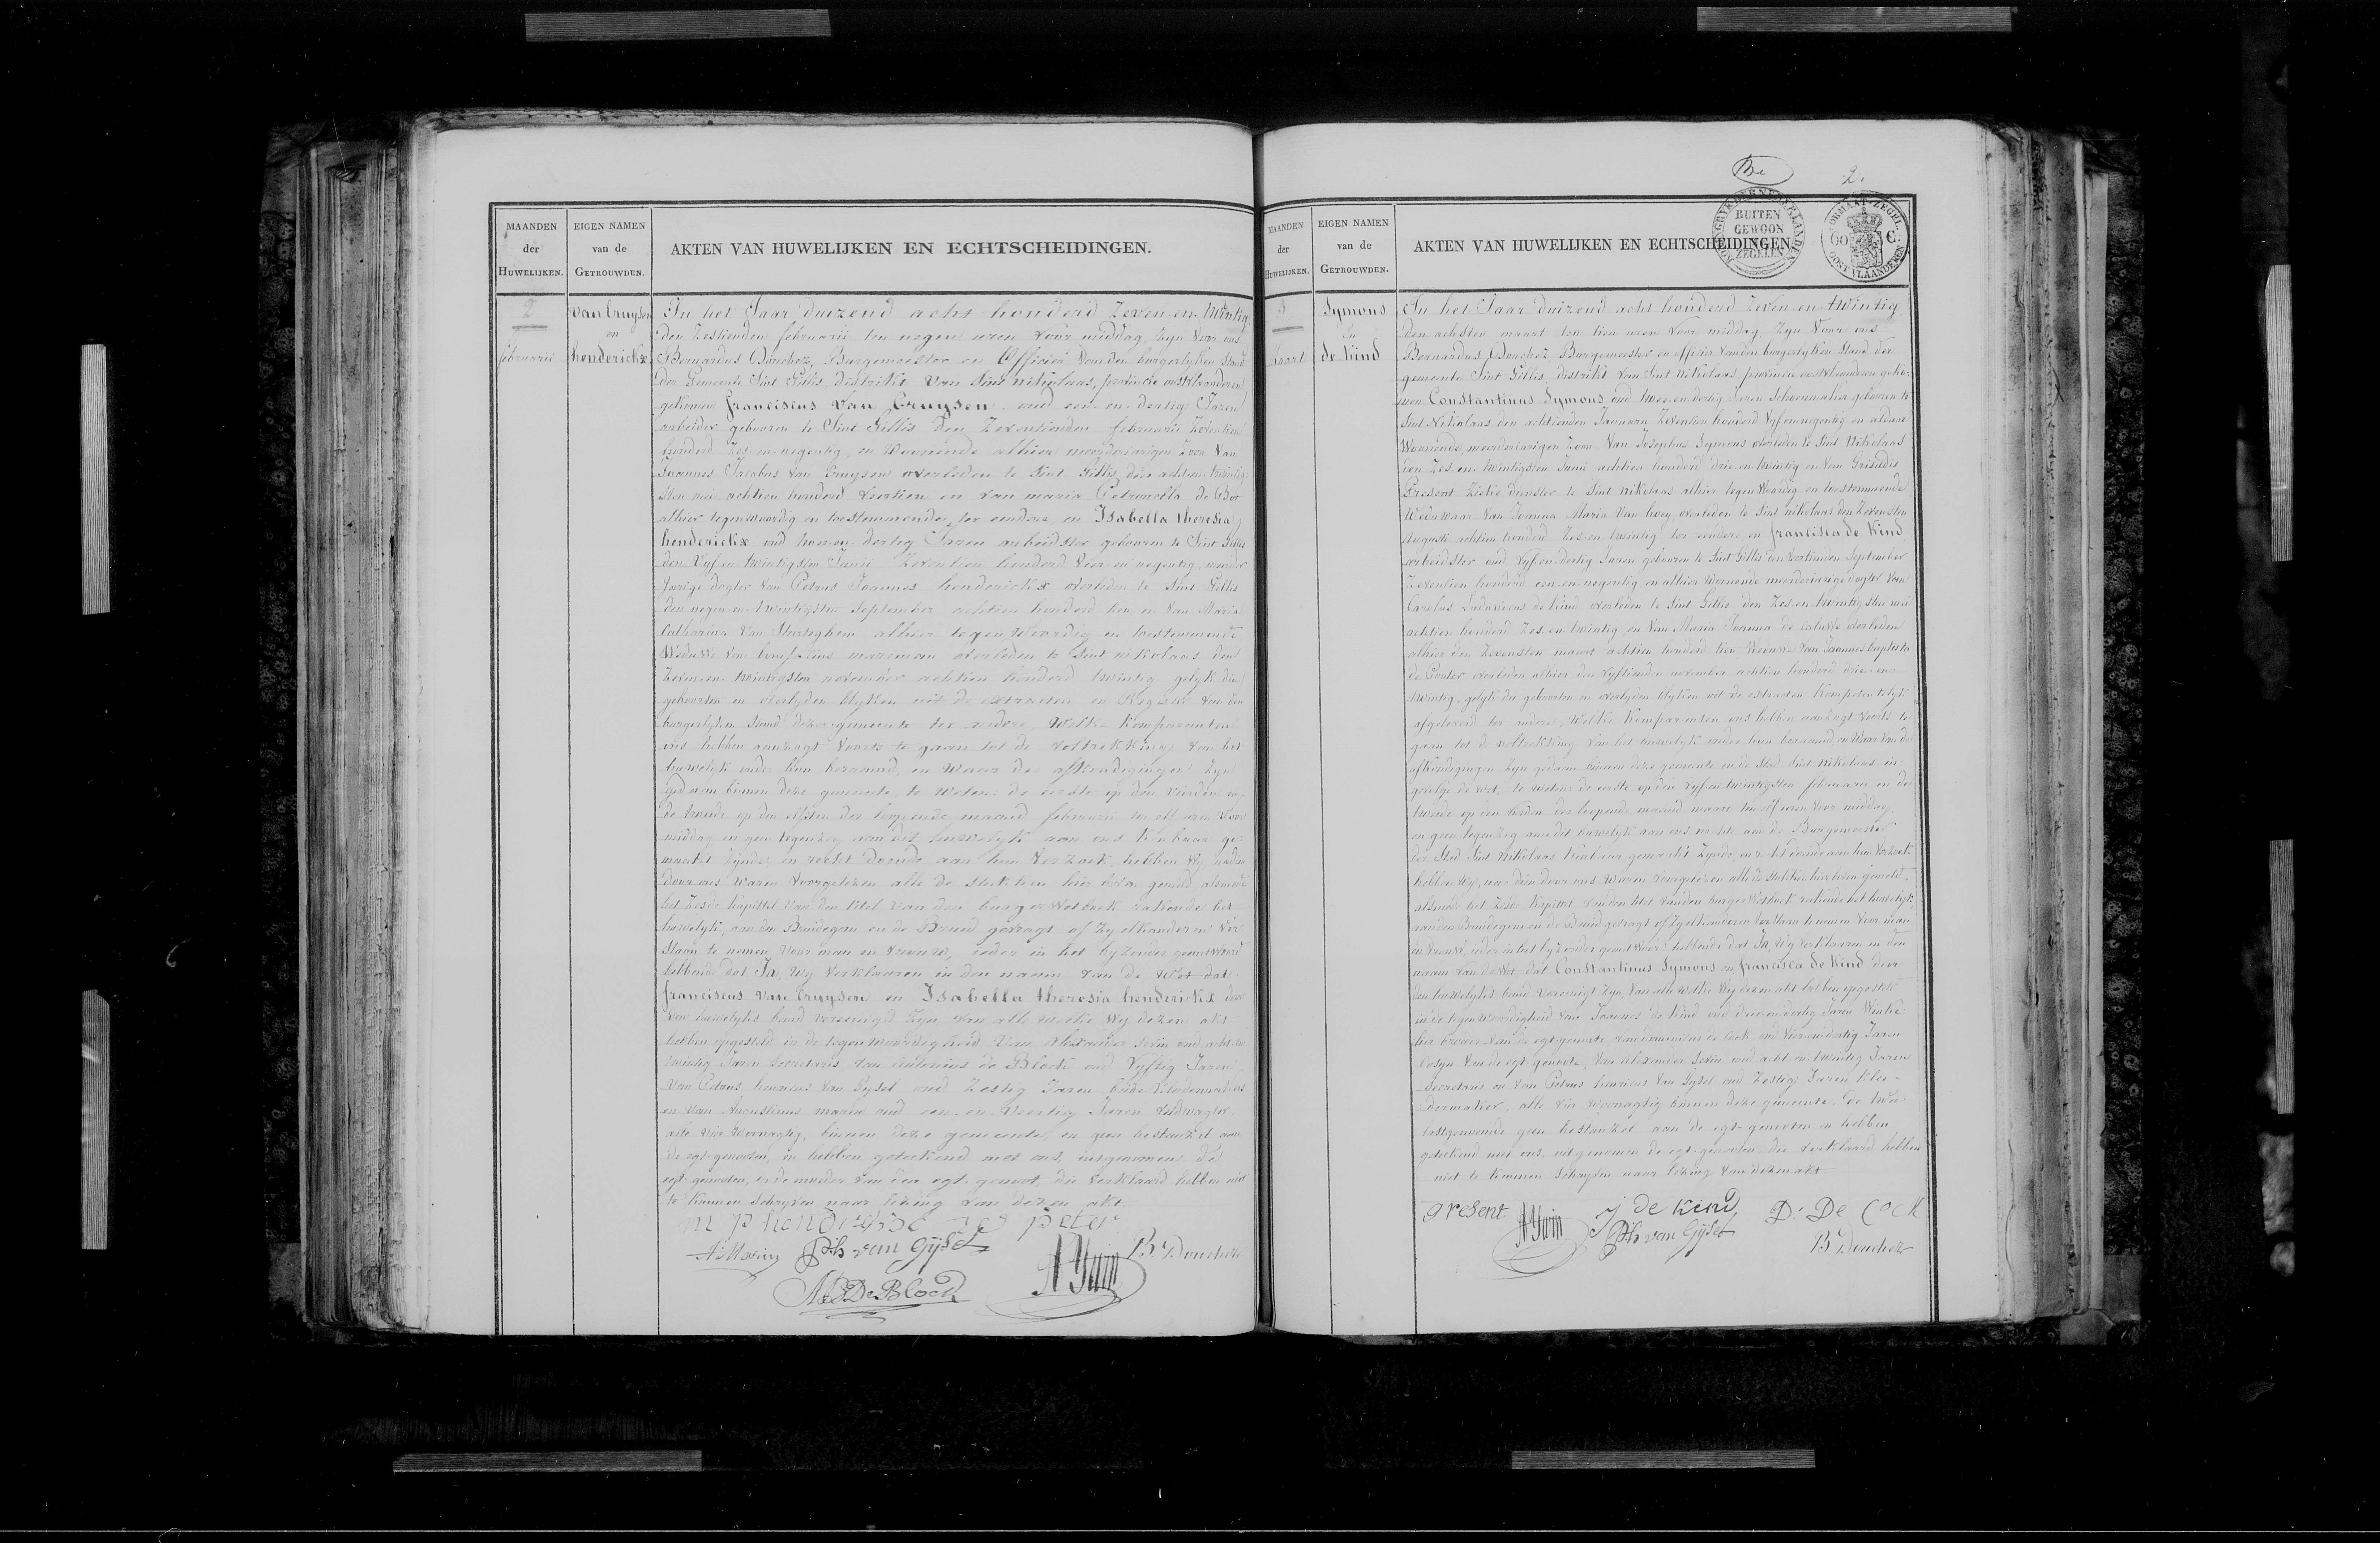 MAANDEN
der
HUWELIJKEN.
EIGEN NAMEN
van de
GETROUWDEN.
AKTEN VAN HUWELIJKEN EN ECHTSCHEIDINGEN.
2
februarii
Van Cruysen
en
henderickx
In het Jaar duizend acht honderd Zeven-en-twintig
den Zestienden februarii ten negen uren voor middag Zyn Voor ons
Bernardus Douchez, Burgemeester en Officier Van den burgerlyken Stand
der Gemeente Sint Gillis, distrikt Van Sint nikolaas, provincie oostvlaanderen
gekomen franciscus Van Cruysen oud een-en-dertig Jaren
arbeider gebooren te Sint Gillis den Zeventienden februarii Zeventien
honderd Zes-en-negentig, en Woonende alhier meerderjarigen Zoon Van
Joannes Jacobus Van Cruysen overleden te Sint Gillis, den achten twintig
sten mei achtien honderd veertien en van maria Petronella de
alhier tegenwoordig en toestemmende ter eendere, en Isabella theresia
henderickx oud twee-en-dertig Jaren arbeidster gebooren te Sint Gillis
den Vyf-en-twintigsten Junii Zeventien honderd Vier-en-negentig, meerder
Jarige dogter Van Petrus Joannes henderickx overleden te Sint Gillis
den negen-en-twintigsten September achtien honderd tien en Van Maria
Catharina Van alhier tegenwoordig en toestemmende
Weduwe Van mareman overleden te Sint nikolaas den
Zeven-en-twintigsten november achtien honderd twintig gelyk die
gebooorten en overlyden blyken uit de extracten en Register Van den
burgerlyken Stand dezer gemeente ter andere, Welke komparanten
ons hebben aanzogt Voorts te gaan tot de Voltrekking Van het
huwelyk onder hun beraamd, en waar der afkondigingen Zyn
gedaan binnen deze gemeente, te Weten de eerste op den Vierden en
de tweede op den elfsten der loopende maand februarii ten elf uren Voor
middag en geen tegenzeg aan dit huwelyk aan ons kenbaar ge-
maakt Zynde, en recht doende aan hun Verzoek, hebben Wy, nadien
door ons waren Voorgelezen alle de Stukken hier boven gemeld alsmede
het Zesde kapittel Van den titel Van den burger Wetboek rakende het
huwelyk, aan den Bruidegom en de Bruid gevragt of Zy elkanderen Ver
Staan te nemen Voor man en Vrouw, ieder in het byzonder geantwoord
hebbende dat Ja, Wy Verklaaren in den naam Van de Wet dat
franciscus Van Cruysen en Isabella theresia henderickx door
den huwelyks band Vereenigd Zyn, Van alle welke Wy dezen akt
hebben opgesteld in de tegenwoordigheid Van Alexander oud acht-en-
twintig Jaren Secretaris Van Antonius de Block oud Vyftig Jaren
Van Petrus henricus Van Gysel oud Zestig Jaren beide kleedermakers
en Van Augustinus marin oud een-en-Veertig Jaren Veldwagter
alle Vier Woonagtig, binnen deze gemeente, en geen bestanzel aan
de egt-genooten, en hebben geteekend met ons, uitgenomen de
egt-genooten, en de moeder Van den egt-genoot, die Verklaard hebben niet
te kunnen Schryven naar lezing Van dezen akt
A: Marin
Ph van Gijsel
B Douchez
De Block
MAANDEN
der
HUWELIJKEN.
EIGEN NAMEN
van de
GETROUWDEN.
AKTEN VAN HUWELIJKEN EN ECHTSCHEIDINGEN.
2.
BUITEN
GEWOON
ZEGELEN
60 C:
OOST VLAANDEREN
3
Maart
Symons
En
de Kind
In het Jaar duizend acht honderd Zeven-en-twintig
den achsten maart ten tien uren Voor middag Zyn Voor ons
Bernardus Douchez Burgemeester en officier Van den burgerlyken Stand der
gemeente Sint Gillis, distrikt van Sint Nikolaas provincie oostvlaanderen geko-
men Constantinus Symons, oud twee-en-dertig Jaren Schoenmaker gebooren te
Sint Nikolaas den achtienden January Zeventien honderd Vyf-en-negentig en aldaar
Woonende, meerderjarigen Zoon Van Josephus Symons overleden te Sint Nikolaas
den Zes-en-twintigsten Junii achtien honderd drie-en-twintig en Van Griseldis
Present Zieke dienster te Sint nikolaas alhier tegen Woordig en toestemmende
Weduwaar Van Joanna Maria Van overleden te Sint nikolaas den Zevensten
Augusti achtien honderd Zes-en-twintig ter eendere en francisca de Kind
arbeidster oud Vyf-en-dertig Jaren gebooren te Sint Gillis den Veertienden September
Zeventien honderd een-en-negentig en alhier Woonende meerderjarige dogter Van
Carolus Ludovicus de kind overleden te Sint Gillis den Zes-en-twintigsten mei
achtien honderd Zes-en-twintig en Van Maria Joanna de overleden
alhier den Zevensten maart achtien honderd tien Weduwe Van Joannes baptista
de overleden alhier den Vyftienden november achtien honderd drie-en-
twintig, gelyk die gebooorten en overlyden blyken uit de extracten kompetentelyk
afgeleverd ter andere, Welke komparanten ons hebben aanzogt Voorts te
gaan tot de voltrekking Van het huwelyk onder hun beraamd, en Waar Van de
afkondigingen Zyn gedaan binnen deze gemeente en de Stad Sint Nikolaas in-
gevolge de Wet, te Weten de eerste op den Vyf-en-twintigsten februarii en de
tweede op den Vierden der loopende maand maart ten elf uren Voor middag
en geen tegenzeg aan dit huwelyk aan ons nochte aan de Burgemeester
der Stad Sint Nikolaas kenbaar gemaakt Zynde, en recht doende aan hun Verzoek
hebben Wy, naer dien door ons Waren Voorgelezen alle de Stukken hier boven gemeld,
alsmede het Zesde kapittel Van den titel Van den burger Wetboek rakende het huwelyk
aan den Bruidegom en de Bruid gevragt of Zy elkanderen Verstaan te nemen Voor man
en Vrouw, ieder in het byzonder geantwoord hebbende dat Ja, Wy Verklaaren in den
naam Van de Wet, dat Constantinus Symons en francisca de Kind door
den huwelyks band Vereenigt Zyn, Van alle Welke Wy dezen akt hebben opgesteld
in de tegenwoordigheid Van Joannes de Kind oud drie-en-dertig Jaren Winke-
lier broeder Van de egt-genoote Van dominicus de Cock oud Vier-en-dertig Jaren
Cosyn Van de egt-genoote, Van Alexander oud acht-en-twintig Jaren
Secretaris en Van Petrus henricus Van Gysel oud Zestig Jaren klee-
dermaker, alle Vier Woonagtig binnen deze gemeente, de twee
lastgenoemde geen bestanzel aan de egt-genooten en hebben
geteekend met ons uitgenomen de egt-genooten die Verklaard hebben
niet te kunnen Schryven naar lezing Van dezen akt
g resent
J de kind
D: De Cock
Ph van Gijsel
B Douchez